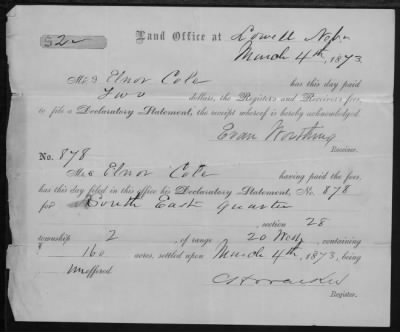 $2 Land Office at Lowell Neb
March 4th, 1873.
Mrs Elnor Cole has this day paid
Two dollars, the Register's and Receiver's fees,
to file a Declaratory Statement, the receipt whereof is hereby acknowledged
Evan Worthing
Receiver.
No. 878
Mrs Elnor Cole having paid the fees,
has this day filed in this office his Declaratory Statement, No. 878
for South East Quarter
, section 28
township 2 , of range 20 West, containing
160 acres, settled upon March 4th, 1873, being
Unoffered
Register.